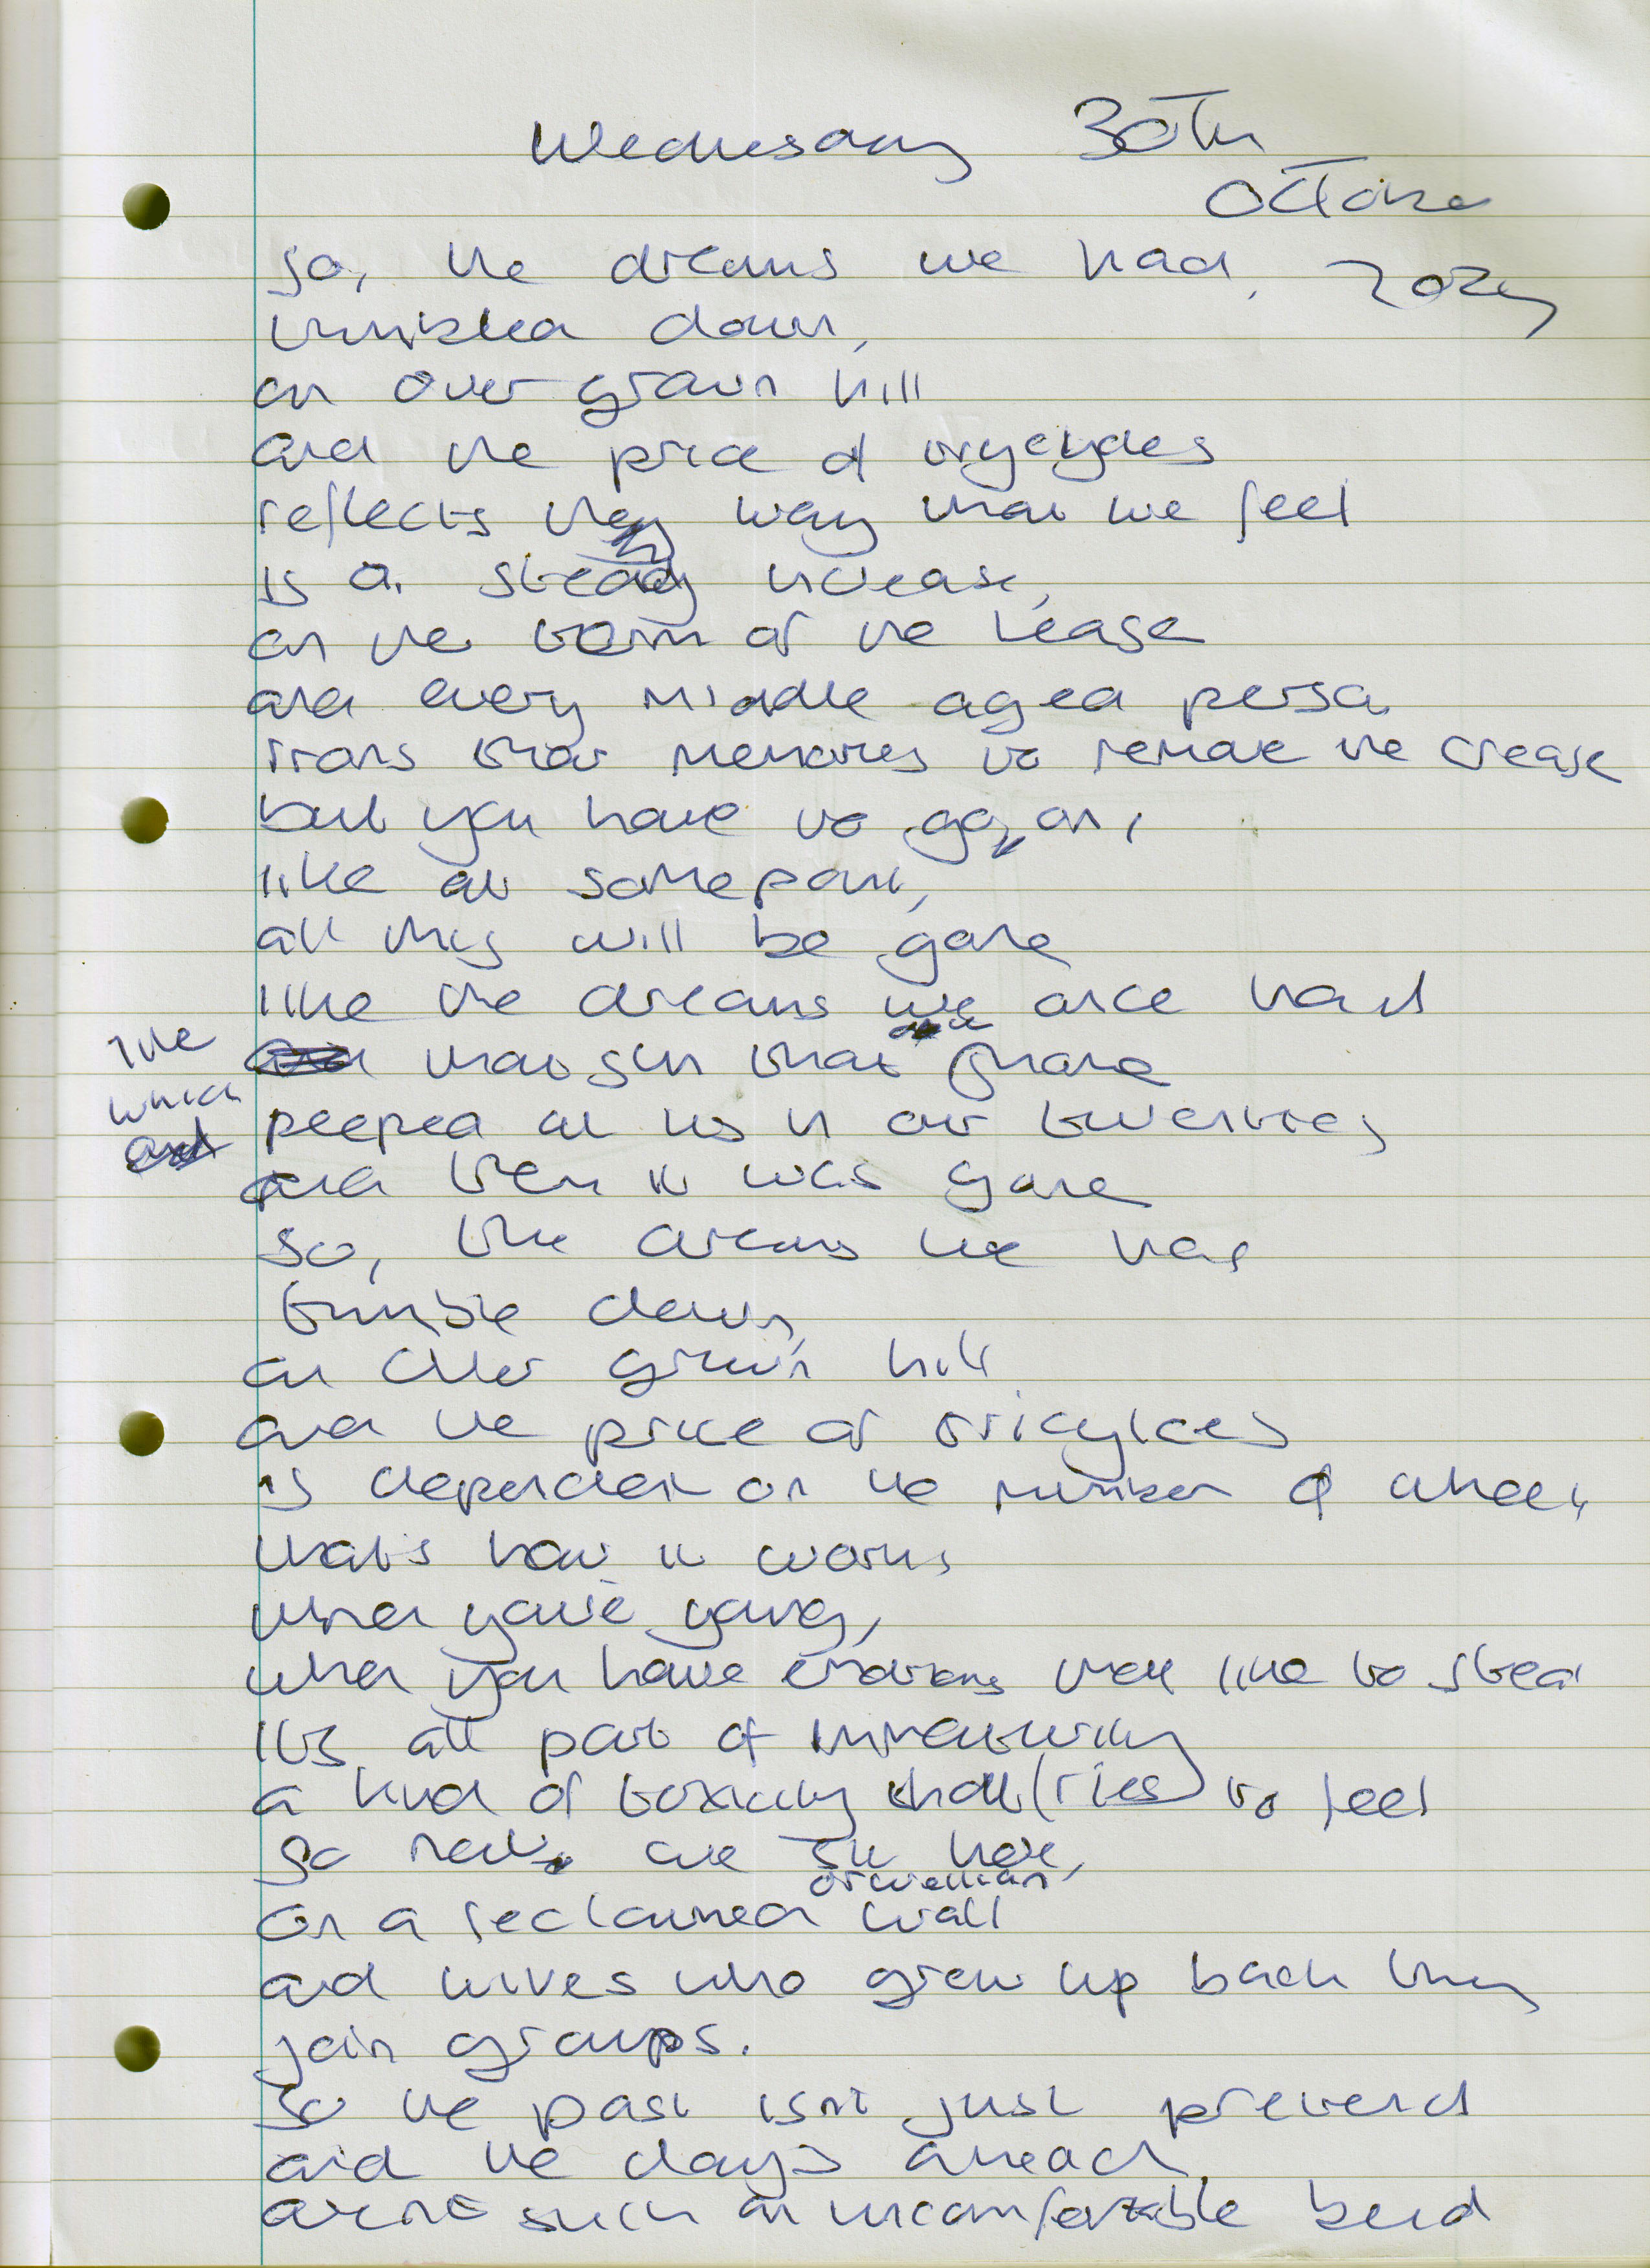 Wednesday 30th
October
so, the dreams we had, 2024
tumbled down,
an over grown hill
and the price of
reflects the way that we feel
is a steady increase,
on the term of the lease
and every middle aged person
irons their memories to remove the crease
but you have to go on,
like at some point,
all this will be gone
like the dreams we once had
like that sun that once shone
which peeped at us in our twenties
and then it was gone
so, the dreams we had
tumble down,
an over grown hill
and the price of tricylces
is dependent on the number of wheels
that's how it works
when you're young,
when you have emotions they like to steal
its all part of immaturity
a kind of toxicity that (ries) to feel
so now, we sit here,
orwellian
on a reclaimed wall
and wives who grew up back then
join groups.
so the past isnt just pretend
and the days ahead,
arent such an uncomfortable bend